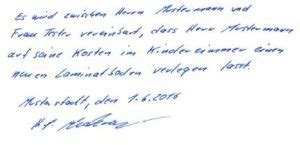 Es wird zwischen Herrn Mustermann und
Frau Tester vereinbart, dass Herr Mustermann
auf seine Kosten im Kinderzimmer einen
neuen Laminatboden verlegen lässt.
Musterstadt, den 1.6.2016